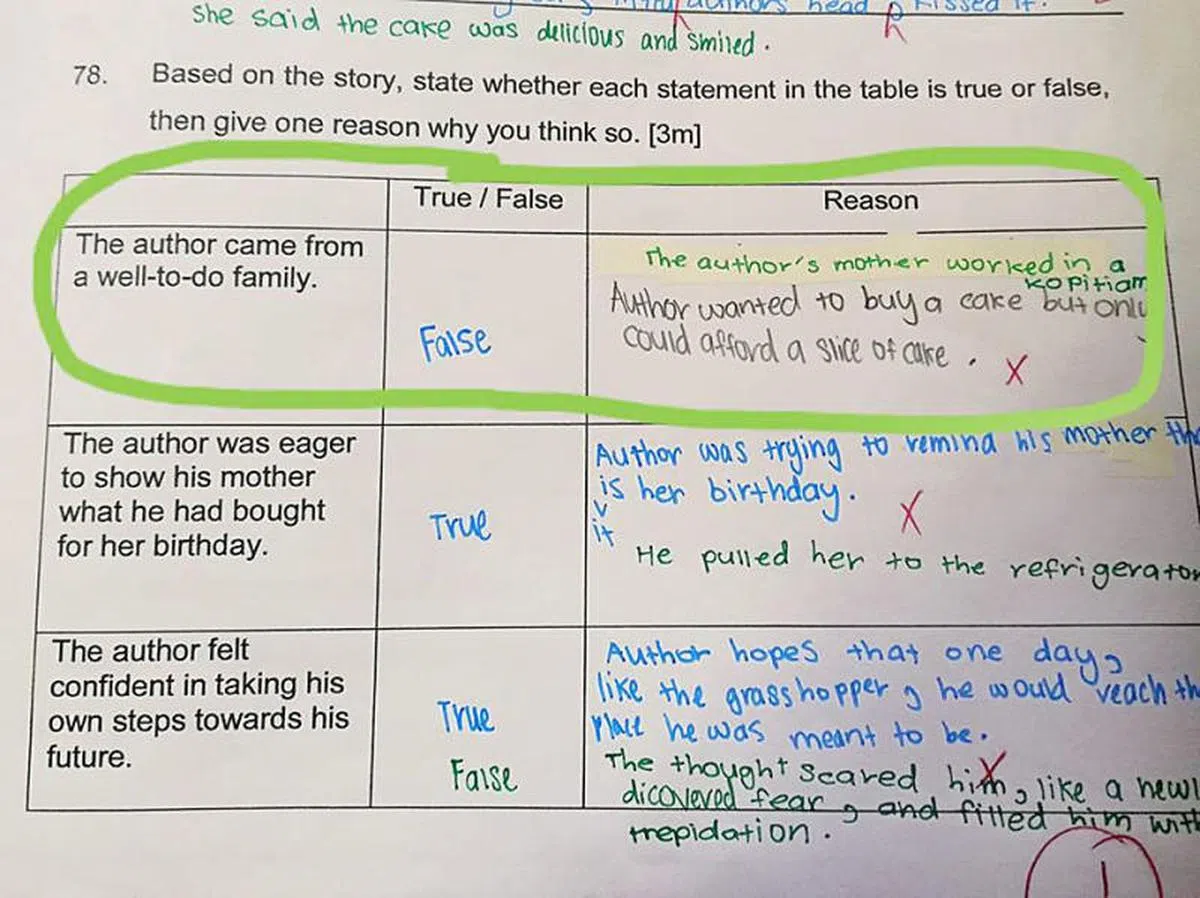 authors head kissed it.
She said the cake was delicious and smiled.
78. Based on the story, state whether each statement in the table is true or false,
then give one reason why you think so. [3m]
True / False
Reason
The author came from
a well-to-do family.
False
The author's mother worked in a
kopitiam
Author wanted to buy a cake but only
could afford a slice of cake.
X
The author was eager
to show his mother
what he had bought
for her birthday.
True
Author was trying to remind his mother
is her birthday.
it
X
He pulled her to the refrigerator
The author felt
confident in taking his
own steps towards his
future.
True
False
Author hopes that one day,
like the grasshopper, he would reach
place he was meant to be.
The thought scared him, like a
dicovered fear, and filled him
trepidation.
X
1